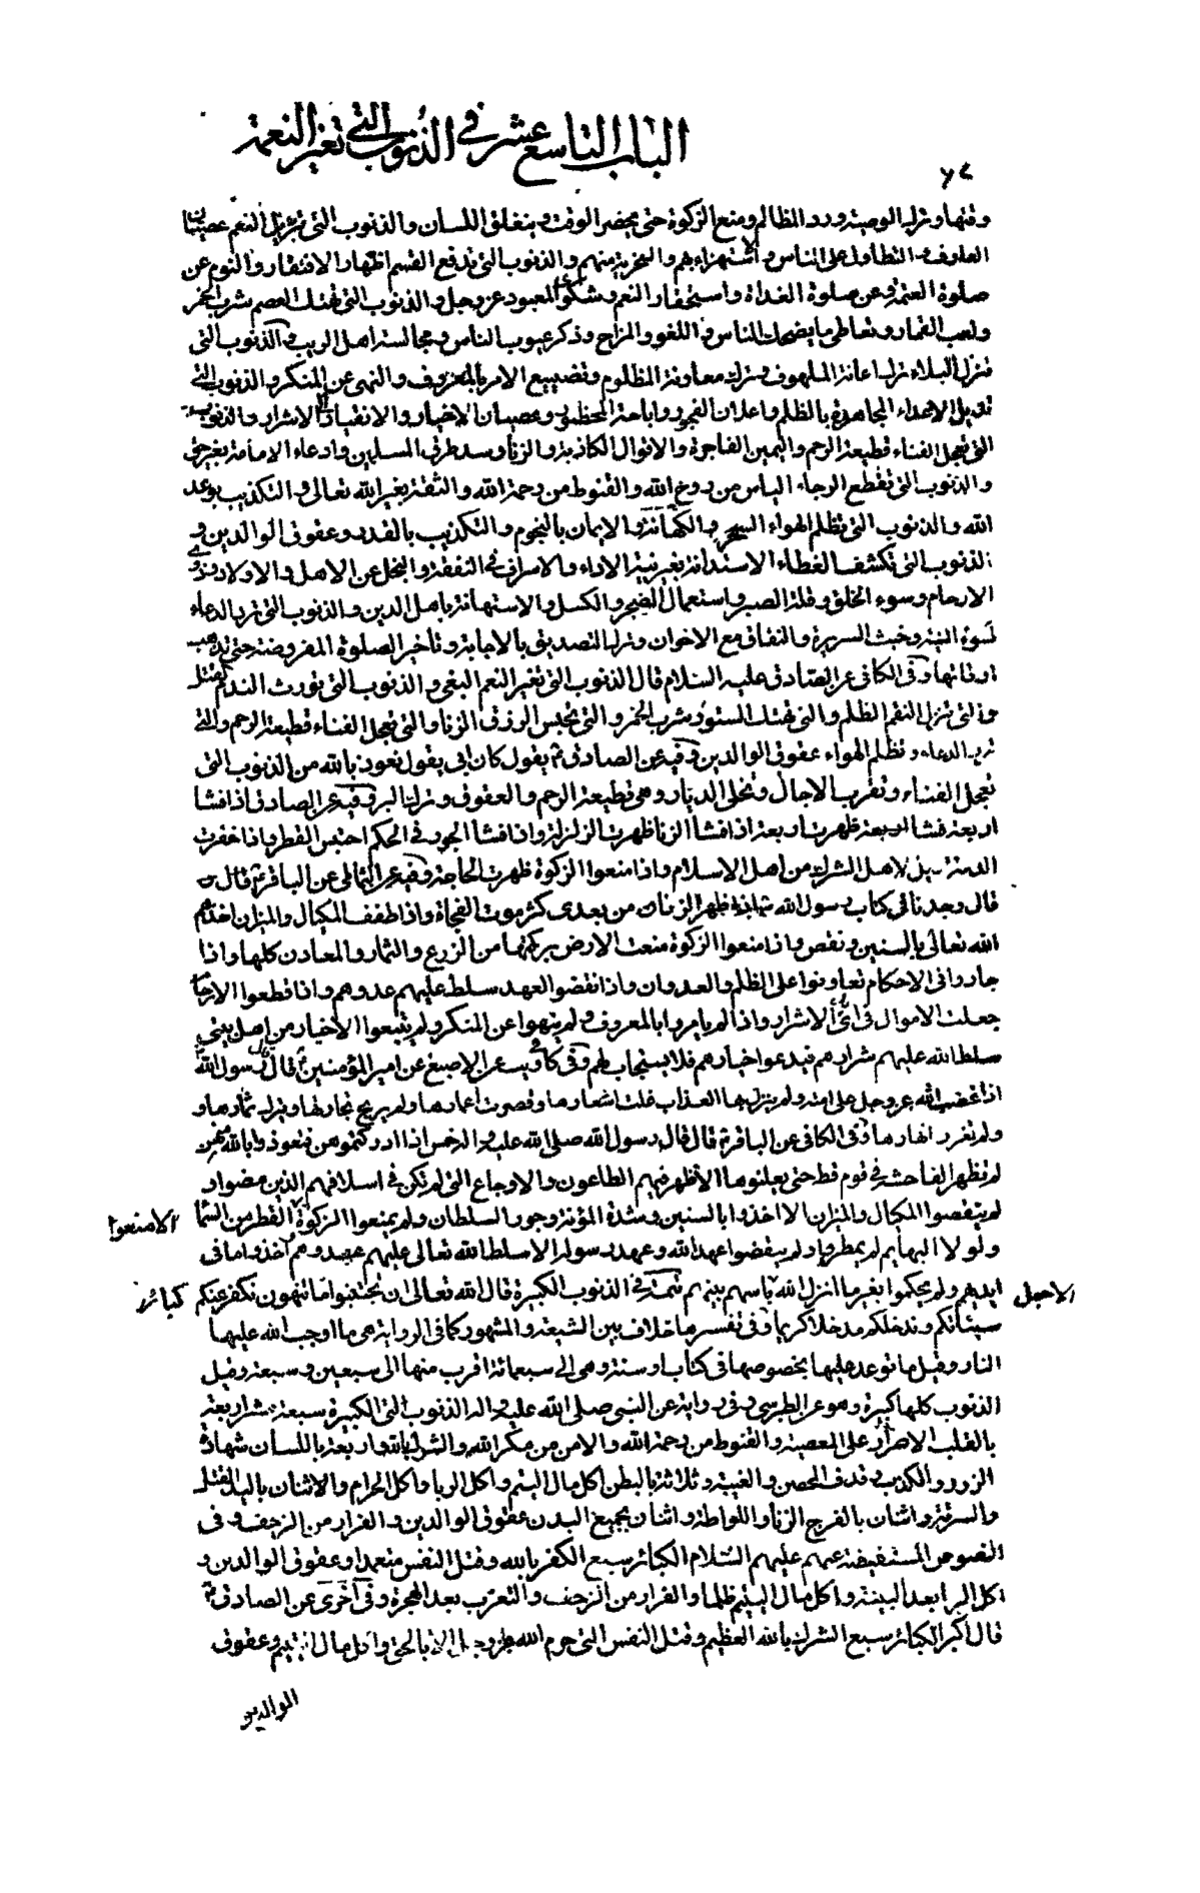 الباب التاسع عشر في الذنوب التي تغير النعمة
وقتها وترك الوصية ورد المظالم ومنع الزكوة حتى يحضر الوقت وينغلق اللسان والذنوب التي تزيل النعم عصيان
العارف والتطاول على الناس والاستهزاء بهم والسخرية منهم والذنوب التي تدفع القسم اظهار الافتقار والنوم عن
صلوة العتمة وعن صلوة الغداة واستحقار النعم وشكوى المعبود عز وجل والذنوب التي تهتك العصم شرب الخمر
ولعب القمار وتعاطي ما يضحك الناس واللغو والمزاح وذكر عيوب الناس ومجالسة اهل الريب والذنوب التي
تنزل البلاء ترك اعانة الملهوف وترك معاونة المظلوم وتضييع الامر بالمعروف والنهى عن المنكر والذنوب التي
تديل الاعداء المجاهرة بالظلم واعلان الفجور واباحة المحظور وعصيان الاخيار والانقياد الى الاشرار والذنوب
التي تعجل الفناء قطيعة الرحم واليمين الفاجرة والاقوال الكاذبة والزنا وسد طرق المسلمين وادعاء الامامة بغير حق
والذنوب التي تقطع الرجاء الياس من روح الله والقنوط من رحمة الله والثقة بغير الله تعالى والتكذيب بوعد
الله والذنوب التي تظلم الهواء السحر والكهانة والايمان بالنجوم والتكذيب بالقدر وعقوق الوالدين و
الذنوب التي تكشف الغطاء الاستدانة بغير نية الاداء والاسراف في النفقة والبخل عن الاهل والاولاد وذوي
الارحام وسوء الخلق وقلة الصبر واستعمال الضجر والكسل والاستهانة باهل الدين والذنوب التي ترد الدعاء
سوء النية وخبث السريرة والنفاق مع الاخوان وترك التصديق بالاجابة وتاخير الصلوة المفروضة حتى تذهب
اوقاتها وفي الكافي عن الصادق عليه السلام قال الذنوب التي تغير النعم البغي والذنوب التي تورث الندم القتل
والتي تنزل النقم الظلم والتي تهتك الستور شرب الخمر والتي تحبس الرزق الزنا والتي تعجل الفناء قطيعة الرحم والتي
ترد الدعاء وتظلم الهواء عقوق الوالدين وفيه عن الصادق ع يقول كان ابي يقول نعوذ بالله من الذنوب التي
تعجل الفناء وتقرب الاجال وتخلي الديار وهي قطيعة الرحم والعقوق وترك البر وفيه عن الصادق اذا فشا
اربعة فشا اربعة ظهرت اربعة اذا فشا الزنا ظهرت الزلزلة واذا فشا الجور في الحكم احتبس القطر واذا خفرت
الذمة لاهل الشرك من اهل الاسلام واذا منعوا الزكوة ظهرت الحاجة وفيه عن الثمالي عن الباقر ع قال
قال وجدنا في كتاب رسول الله ص اذا ظهر الزنا من بعدي كثر موت الفجأة واذا طفف المكيال والميزان اخذهم
الله تعالى بالسنين ونقص واذا منعوا الزكوة منعت الارض بركتها من الزرع والثمار والمعادن كلها واذا
جاروا في الاحكام تعاونوا على الظلم والعدوان واذا نقضوا العهد سلط عليهم عدوهم واذا قطعوا الارحام
جعلت الاموال في ايدى الاشرار واذا لم يامروا بالمعروف ولم ينهوا عن المنكر ولم يتبعوا الاخيار من اهل بيتي
سلط الله عليهم شرارهم فيدعوا خيارهم فلا يستجاب لهم وفي كا وئب عن الاصبغ عن امير المؤمنين ع قال قال رسول الله
اذا غضب الله عز وجل على امة ولم ينزل بها العذاب غلت اسعارها وقصرت اعمارها ولم يربح تجارتها ولم تزك ثمارها و
ولم تغزر انهارها وفي الكافي عن الباقر ع قال قال رسول الله صلى الله عليه واله خمس اذا ادركتموهن فتعوذوا بالله منهن
لم تظهر الفاحشة في قوم قط حتى يعلنوها الا ظهر فيهم الطاعون والاوجاع التي لم تكن في اسلافهم الذين مضوا و
لم ينقصوا المكيال والميزان الا اخذوا بالسنين وشدة المؤنة وجور السلطان ولم يمنعوا الزكوة القطر من السماء
الا منعوا
ولولا البهايم لم يمطروا ولم ينقضوا عهد الله وعهد رسوله الا سلط الله تعالى عليهم عدوهم واخذوا ما في
ايديهم ولم يحكموا بغير ما انزل الله باسهم بينهم تتمة في الذنوب الكبيرة قال الله تعالى ان تجتنبوا ما تنهون نكفر عنكم
الا جعل
كبائر
سيئاتكم وندخلكم مدخلا كريما وفي تفسيرها خلاف بين الشيعة والمشهور كما في الرواية هي ما اوجب الله عليها
النار وقيل ما توعد عليها بخصوصها في كتاب او سنة وهي الى سبعمائة اقرب منها الى سبعين وسبعة وقيل
الذنوب كلها كبيرة وهو عن الطبرسي وفي رواية عن النبي صلى الله عليه واله الذنوب التي الكبيرة سبعة عشر اربعة
بالقلب الاصرار على المعصية والقنوط من رحمة الله والامن من مكر الله والشرك بالله واربعة باللسان شهادة
الزور والكذب وقذف المحصن والغيبة وثلاثة بالبطن اكل مال اليتيم واكل الربا واكل الحرام والاثنان باليد القتل
والسرقة واثنان بالفرج الزنا واللواطة واثنان بجميع البدن عقوق الوالدين والفرار من الزحف وفي
النصوص المستفيضة عنهم عليهم السلام الكبائر سبع الكفر بالله وقتل النفس متعمدا وعقوق الوالدين و
اكل الربا بعد البينة واكل مال اليتيم ظلما والفرار من الزحف والتعرب بعد الهجرة وفي اخرى عن الصادق ع
قال اكبر الكبائر سبع الشرك بالله العظيم وقتل النفس التي حرم الله عز وجل الا بالحق واكل مال اليتيم وعقوق
الوالدين